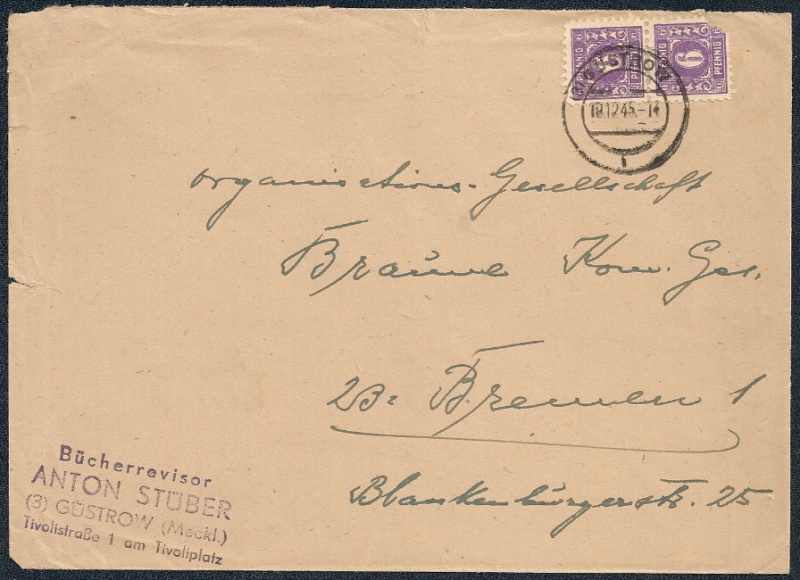 6 PFENNIG 6
PFENNIG
(3) GÜSTROW
19.12.45.-14
1
Organisations-Gesellschaft
Braune Kom. Ges.
23: Bremen 1
Blankenburgerstr. 25
Bücherrevisor
ANTON STÜBER
(3) GÜSTROW (Meckl.)
Tivolistraße 1 am Tivoliplatz